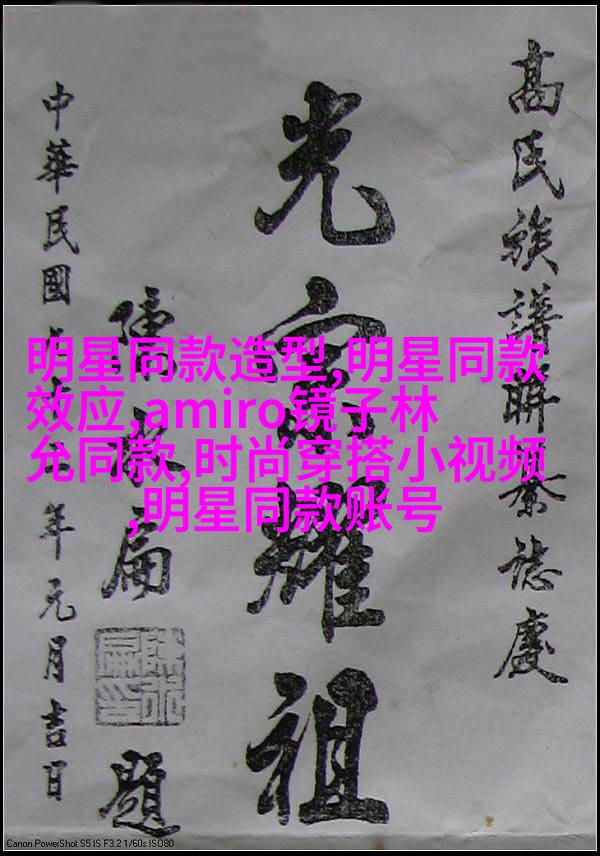 高氏族譜聯宗誌慶
光宗耀祖
陳水扁
題
中華民國
年元月吉日
明星同款造型,明星同款
效应,amiro镜子林
允同款,时尚穿搭小视频
,明星同款账号
Canon PowerShot S5 IS F3.2 1/60s ISO80